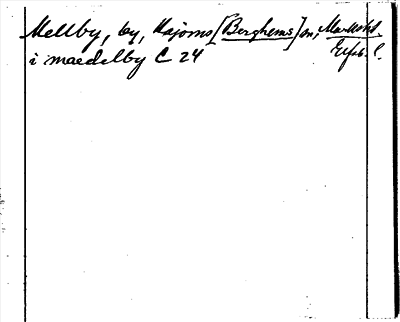 Mellby, by, Kajoms [Berghems] sn, Mark hd.
i maedelby C 24
Elfsb. l.